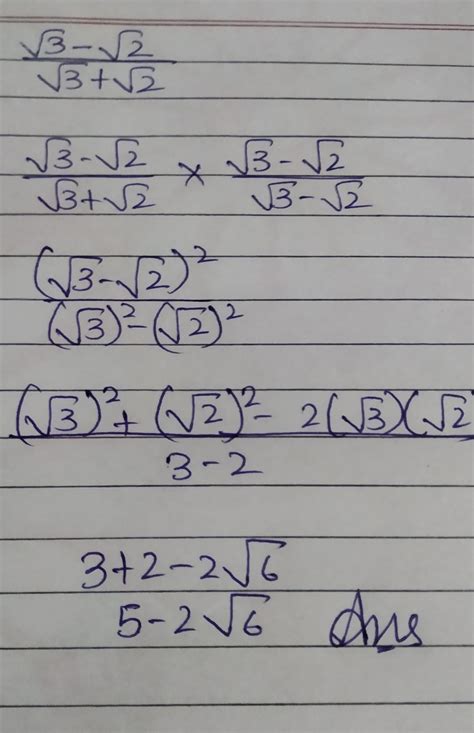 √3-√2/√3+√2
√3-√2/√3+√2 × √3-√2/√3-√2
(√3-√2)²/(√3)²-(√2)²
(√3)²+(√2)²-2(√3)(√2/3-2
3+2-2√6
5-2√6 Ans